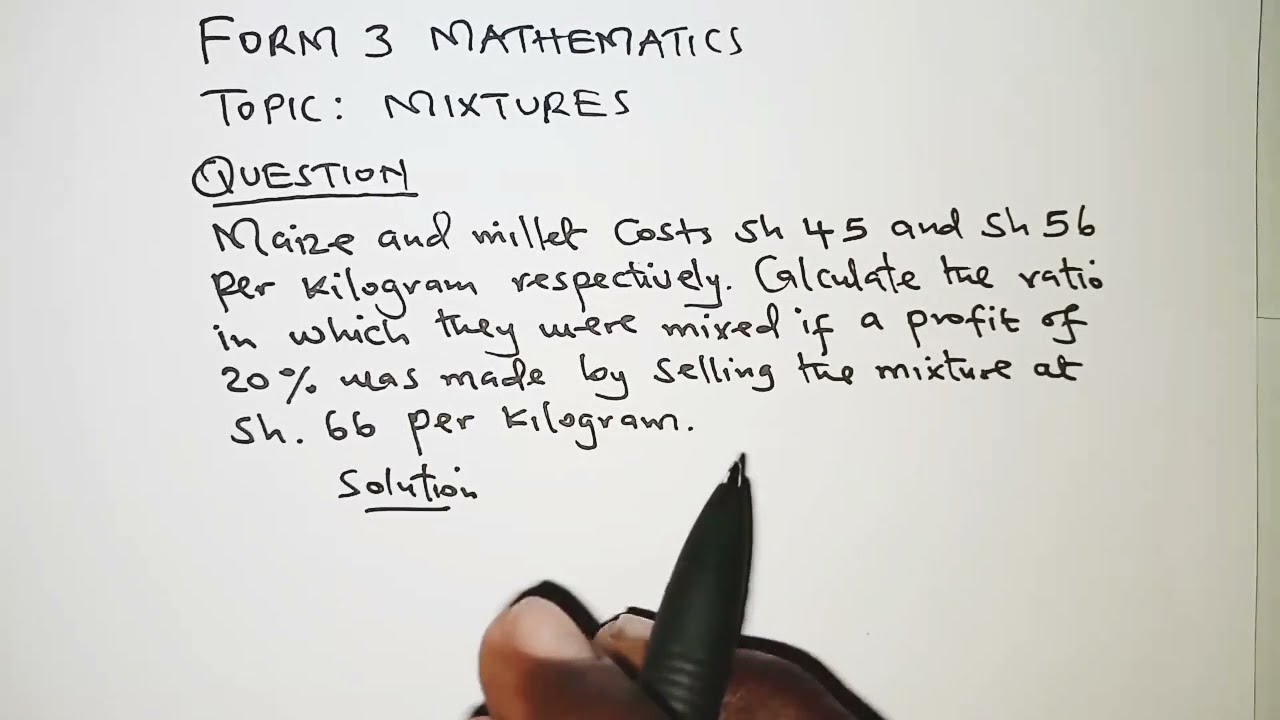 FORM 3 MATHEMATICS
TOPIC: MIXTURES
QUESTION
Maize and millet Costs Sh 45 and Sh 56
per kilogram respectively. Calculate the ratio
in which they were mixed if a profit of
20% was made by selling the mixture at
Sh. 66 per kilogram.
Solution